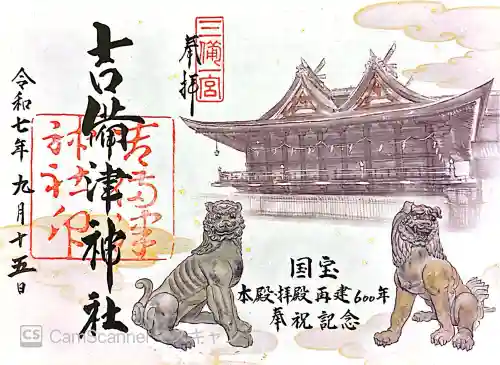 三備宮
奉拝
吉備津神社
令和七年九月十五日
国宝
本殿拝殿再建600年
奉祝記念
CS CamScanner